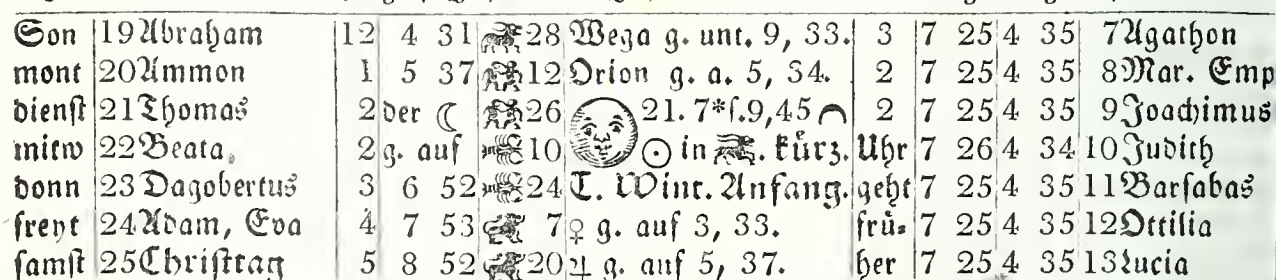 Son 19 Abraham 12 4 31 28 Wega g. unt. 9, 33. 3 7 25 4 35 7 Agathon
mont 20 Ammon 1 5 37 12 Orion g. a. 5, 34. 2 7 25 4 35 8 Mar. Emp
dienſt 21 Thomas 2 der ☾ 26 21. 7*ſ. 9, 45 2 7 25 4 35 9 Joachimus
mitw 22 Beata, 2 g. auf 10 ☉ in . kürz. Uhr 7 26 4 34 10 Judith
donn 23 Dagobertus 3 6 52 24 T. Wint. Anfang. geht 7 25 4 35 11 Barſabas
freyt 24 Adam, Eva 4 7 53 7 ♀ g. auf 3, 33. frü⸗ 7 25 4 35 12 Ottilia
ſamſt 25 Chriſttag 5 8 52 20 ♃ g. auf 5, 37. her 7 25 4 35 13 Lucia